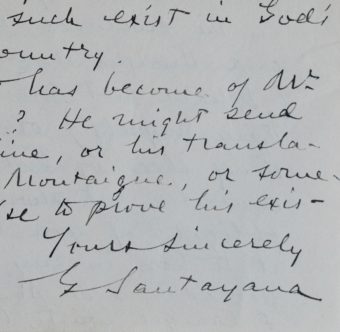 such exist in God's
country.
has become of Mr.
? He might send
line, or his transla-
Montaigne, or some-
se to prove his exis-
Yours sincerely
G Santayana